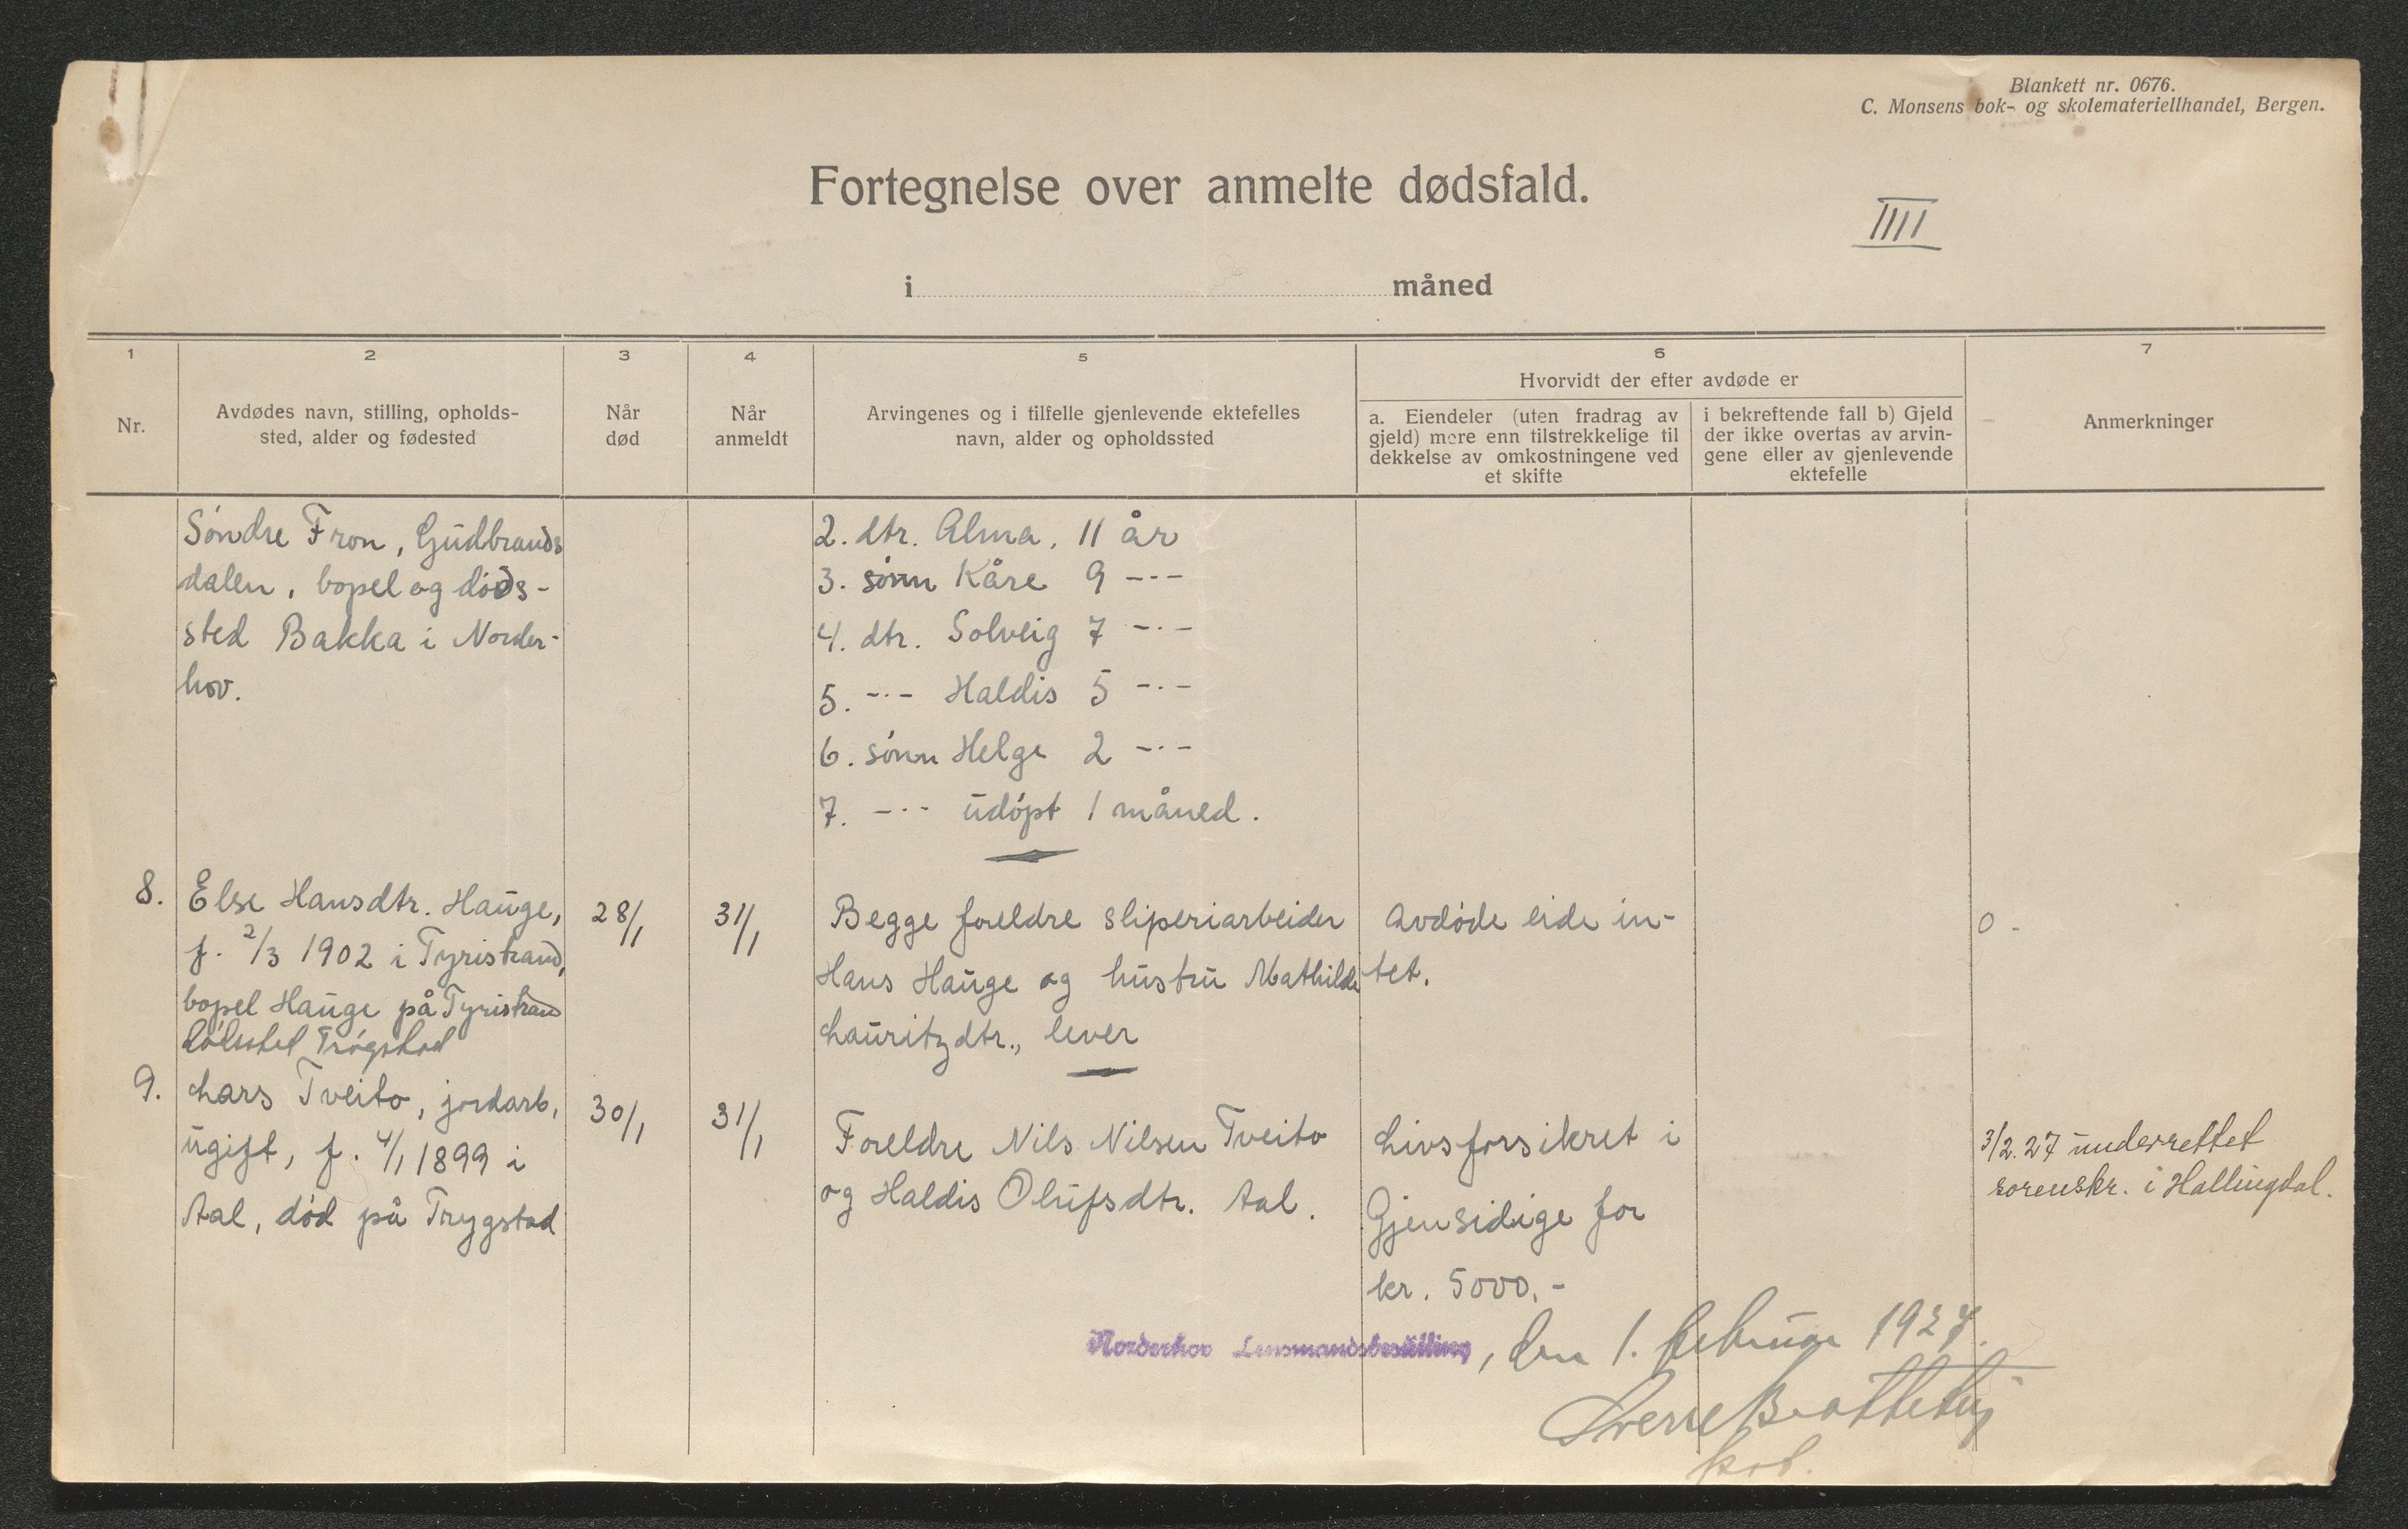 Blankett nr. 0676.
C. Monsens bok- og skolemateriellhandel, Bergen.
Fortegnelse over anmelte dødsfald.
IIII
i måned
1
2
3
4
5
6
7
Nr.
Avdødes navn, stilling, opholds-
sted, alder og fødested
Når
død
Når
anmeldt
Arvingenes og i tilfelle gjenlevende ektefelles
navn, alder og opholdssted
Hvorvidt der efter avdøde er
a. Eiendeler (uten fradrag av
gjeld) mere enn tilstrekkelige til
dekkelse av omkostningene ved
et skifte
i bekreftende fall b) Gjeld
der ikke overtas av arvin-
gene eller av gjenlevende
ektefelle
Anmerkninger
Søndre Fron, Gudbrands
dalen, bopel og døds-
sted Bakka i Norder-
hov.
2. dtr. Alma, 11 år
3. sønn Kåre 9 -·-
4. dtr. Solveig 7 -·-
5. -·- Haldis 5 -·-
6. sønn Helge 2 -·-
7. -·- udøpt 1 måned.
8.
Else Hansdtr. Hauge,
f. 2/3 1902 i Tyristrand,
bopel Hauge på Tyristrand
dødssted Trøgstad
28/1
31/1
Begge foreldre sliperiarbeider
Hans Hauge og hustru Mathilde
Lauritzdtr., lever
Avdøde eide in-
tet.
0 -
9.
Lars Tveito, jordarb,
ugift, f. 4/1 1899 i
Aal, død på Trygstad
30/1
31/1
Foreldre Nils Nilsen Tveito
og Haldis Olufsdtr. Aal.
Livsforsikret i
Gjensidige for
kr. 5000,-
3/2.27 underrettet
sorenskr. i Hallingdal.
Norderhov Lensmandsbestilling, den 1. februar 1927.
Sverre